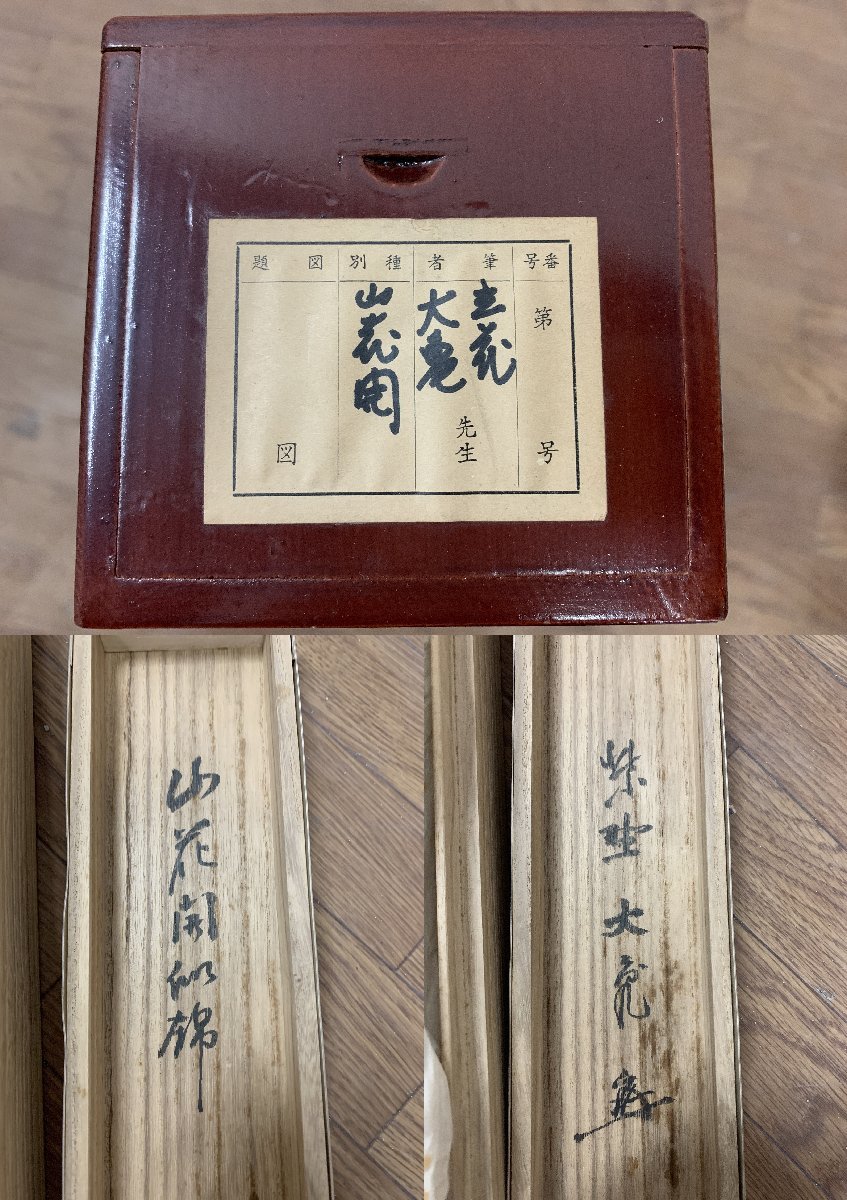 番号
第 号
筆者
立花
大亀
先生
種別
山花開
図題
図
山花開似錦
紫野 大亀